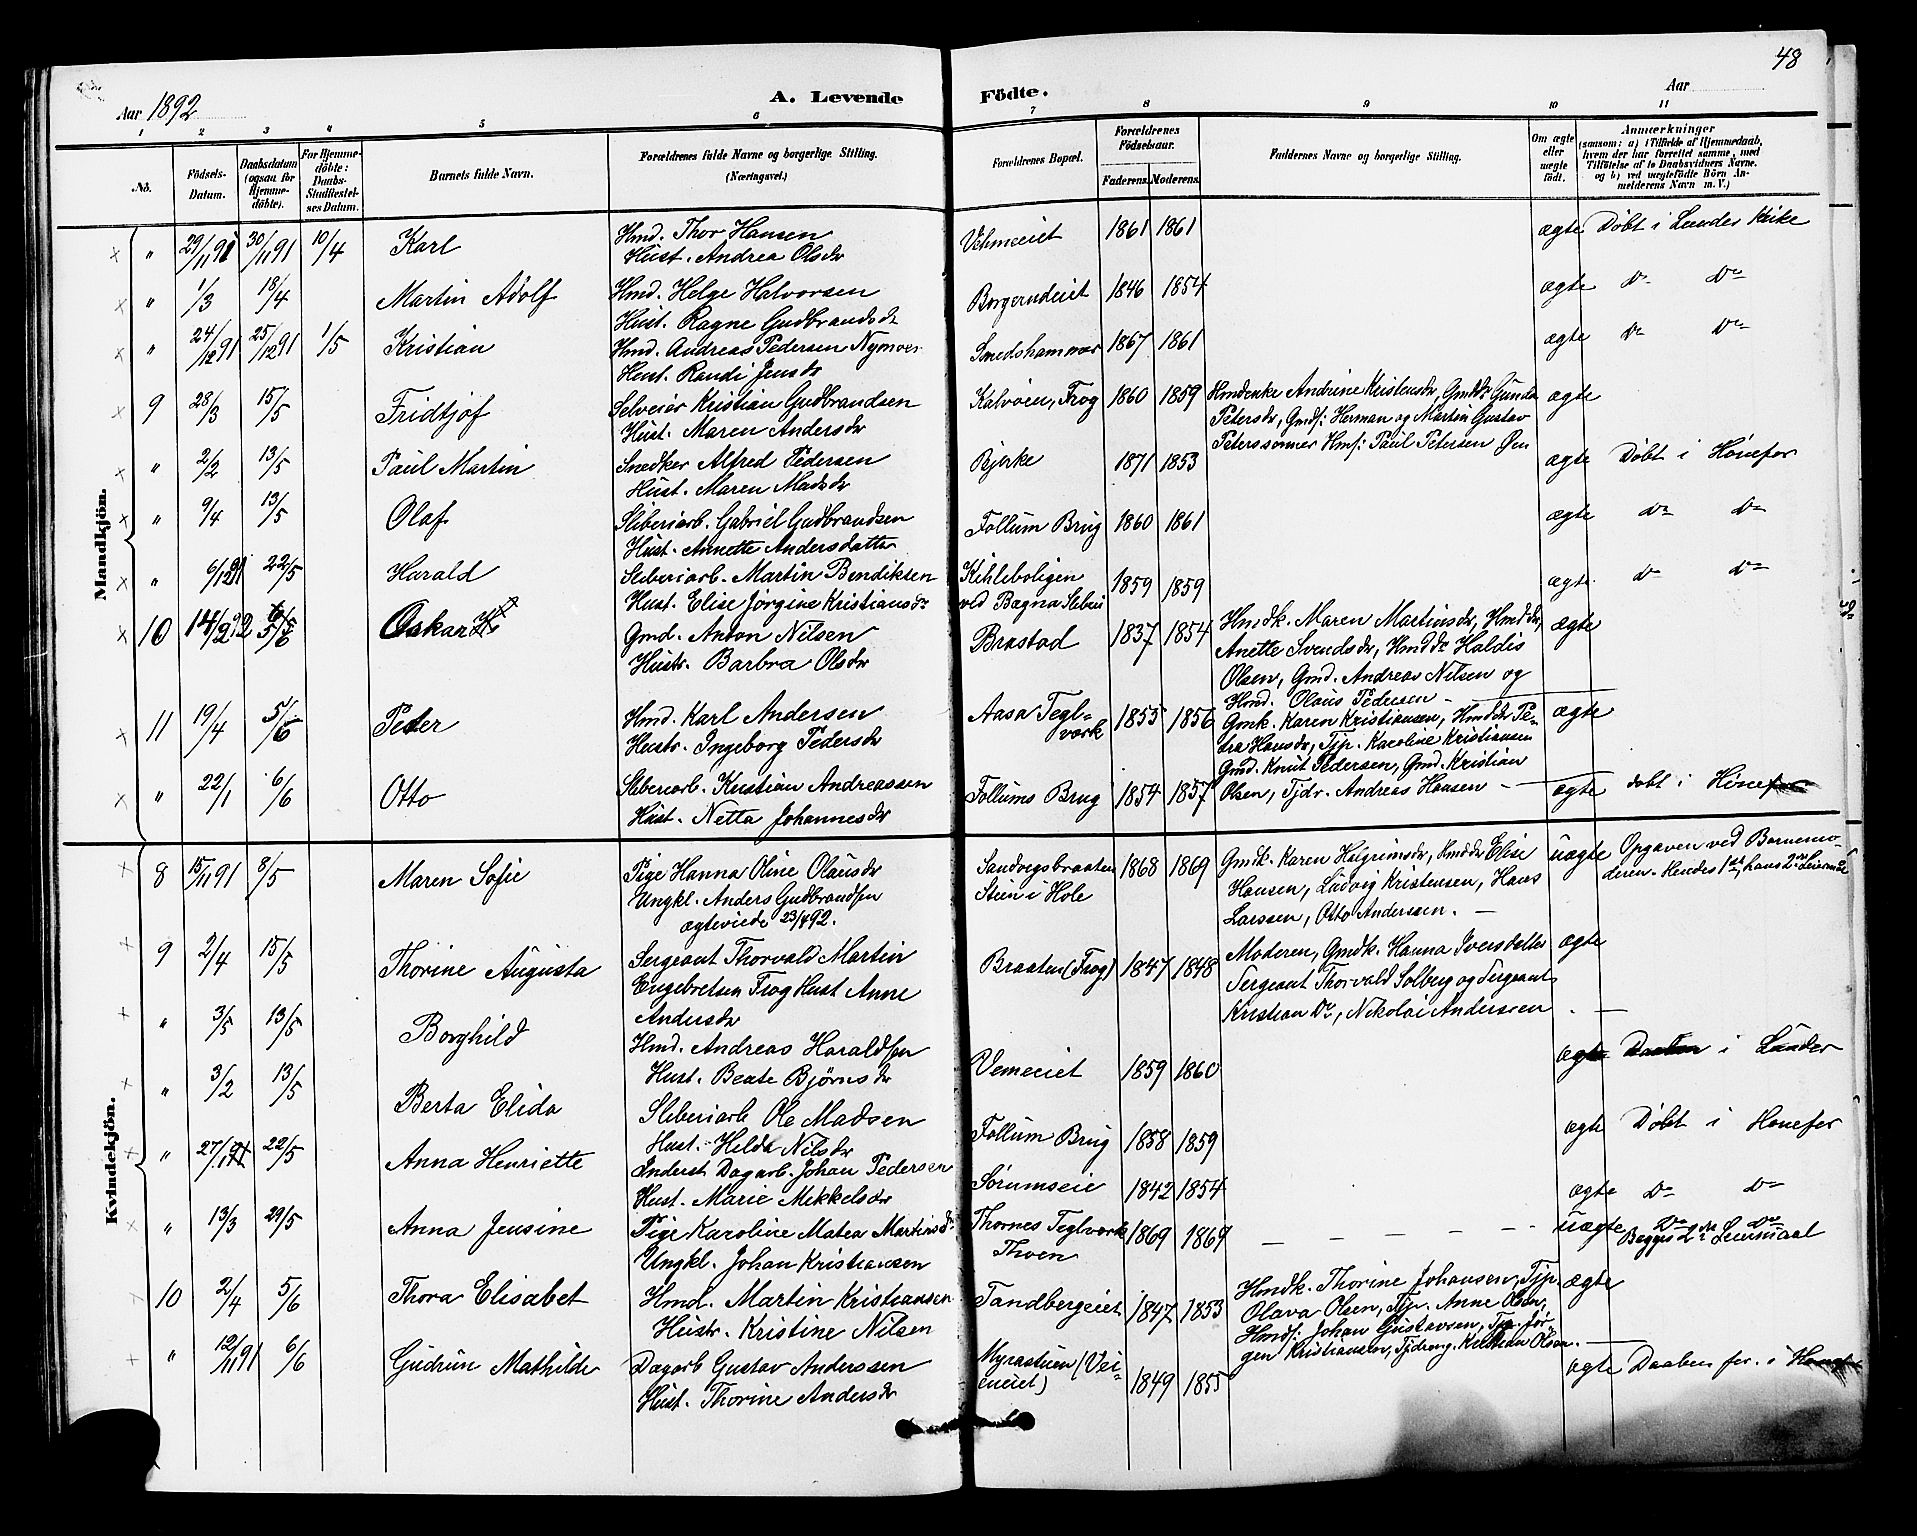 48
Aar 1892 A. Levende Födte. Aar
1 2 3 4 5 6 7 8 9 10 11
No. Födsels-Datum. Daabsdatum (ogsaa for Hjemme-döbte). For Hjemme-döbte: Daabs-Stadfæstel-ses Datum. Barnets fulde Navn. Forældrenes fulde Navne og borgerlige Stilling. (Næringsvei.) Forældrenes Bopæl. Forældrenes Födselsaar. Faderens. Moderens. Faddernes Navne og borgerlige Stilling. Om ægte eller uægte födt. Anmærkninger (saasom: a) i Tilfælde af Hjemmedaab, hvem der har forrettet samme, med Tilföielse af to Daabsvidners Navne. og b) ved uægtefödte Börn An-melderens Navn m. V.)
Mandkjön.
" 29/11 91 30/11 91 10/4 Karl Hmd. Thor Hansen Vehmeeiet 1861 1861 ægte Döbt i Lunder Kirke
Hust. Andrea Olsdr
" 1/3 18/4 Martin Adolf Hmd. Helge Halvorsen Borgerudeiet 1846 1854 ægte do do
Hust. Ragne Gudbrandsdr
" 24/12 91 25/12 91 1/5 Kristian Hmd. Andreas Pedersen Nymoen Smedshammer 1867 1861 ægte do do
Hust. Randi Jensdr
9 28/3 15/5 Fridtjof Selveier Kristian Gudbrandsen Kalvöen, Frog 1860 1859 Hmdenke Andrine Kristensdr, Gmddr Gunda ægte
Hust. Maren Andersdr Petersdr, Gmdf: Herman og Martin Gustav
Peterssönner Hmf: Paul Petersen Öen
" 2/2 13/5 Paul Martin Snedker Alfred Pedersen Bjerke 1871 1853 ægte Döbt i Hönefos
Hust. Maren Madsdr
" 9/4 13/5 Olaf Sliberiarb. Gabriel Gudbrandsen Follum Brug 1860 1861 ægte do do
Hust. Annette Andersdatter
" 6/12 91 22/5 Harald Sliberiarb. Martin Bendiksen Kihleboligen 1859 1859 ægte do do
Hust. Elise Jörgine Kristiansdr ved Bægna Sliberi
10 14/2 92 5/6 Oskar Gmd. Anton Nilsen Braatad 1837 1854 Hmdk. Maren Martinsdr, Hmddr, ægte
Hustr. Barbra Olsdr Anette Svendsdr, Hmddr Haldis
Olsen, Gmd. Andreas Nilsen og
Hmd. Olaus Pedersen —
11 19/4 5/6 Peter Hmd. Karl Andersen Aasa Tegl- 1855 1856 Gmk. Karen Kristiansen, Hmddr Pe- ægte
Hustr. Ingeborg Pedersdr værk tra Hansdr, Tjp. Karoline Kristiansen
Gmd. Knut Pedersen, Gmd. Kristian
" 22/1 6/6 Otto Sliberiarb. Kristian Andreassen Follums Brug 1854 1857 Olsen, Tjdr. Andreas Hansen — ægte döbt i Hönefos
Hust. Netta Johannesdr
Kvindekjön.
8 15/11 91 8/5 Maren Sofie Pige Hanna Oline Olausdr Sandvigsbraaten 1868 1869 Gmdk. Karen Helgrimsdr, Hmddr Elise uægte Opgaven ved Barnemo-
Ungkl. Anders Gudbrandsen Steen i Hole Hansen, Ludvig Kristensen, Hans deren. Hendes 1ste, hans 2den Leiermaal
ægteviede 23/4 92. Larssen, Otto Anderssen. —
9 2/4 15/5 Thorine Augusta Sergeant Thorvald Martin Braaten (Frog) 1847 1848 Moderen, Gmdk. Hanna Iversdatter ægte
Engebretsen Frog Hust Anne Sergeant Thorvald Solberg og Sergeant
Andersdr Kristian Do, Nikolai Anderssen —
" 3/5 13/5 Borghild Hmd. Andreas Haraldsen Vemeeiet 1859 1860 ægte Daaben i Lunder
Hust. Beate Björnsdr
" 3/2 13/5 Berta Elida Sliberiarb Ole Madsen Follum Brug 1858 1859 ægte Döbt i Hönefos
Hust. Helda Nilsdr
" 27/11 91 22/5 Anna Henriette Inderst Dagarb. Johan Pedersen Sörumseie 1842 1854 ægte do do
Hust. Marie Mikkelsdr
" 13/3 29/5 Anna Jensine Pige Karoline Matea Martinsdr Thornes Teglværk 1869 1869 — — — — — uægte do do
Ungkl. Johan Kristiansen Thoen Begges 2det Leiermaal
10 2/4 5/6 Thora Elisabet Hmd. Martin Kristiansen Tandbergeiet 1847 1853 Hmdk. Thorine Johansen, Tjp. ægte
Hustr. Kristine Nilsen Olava Olsen, Tjp. Anne Olsen,
Hmdf: Johan Gustavsen, Tjp. Jör-
gen Kristiansen, Tjdreng. Kristian Olsen. —
" 12/11 91 6/6 Gudrun Mathilde Dagarb Gustav Anderssen Myrastuen (Vei- 1849 1855 ægte Daaben for. i
Hust. Thorine Andersdr eneiet)